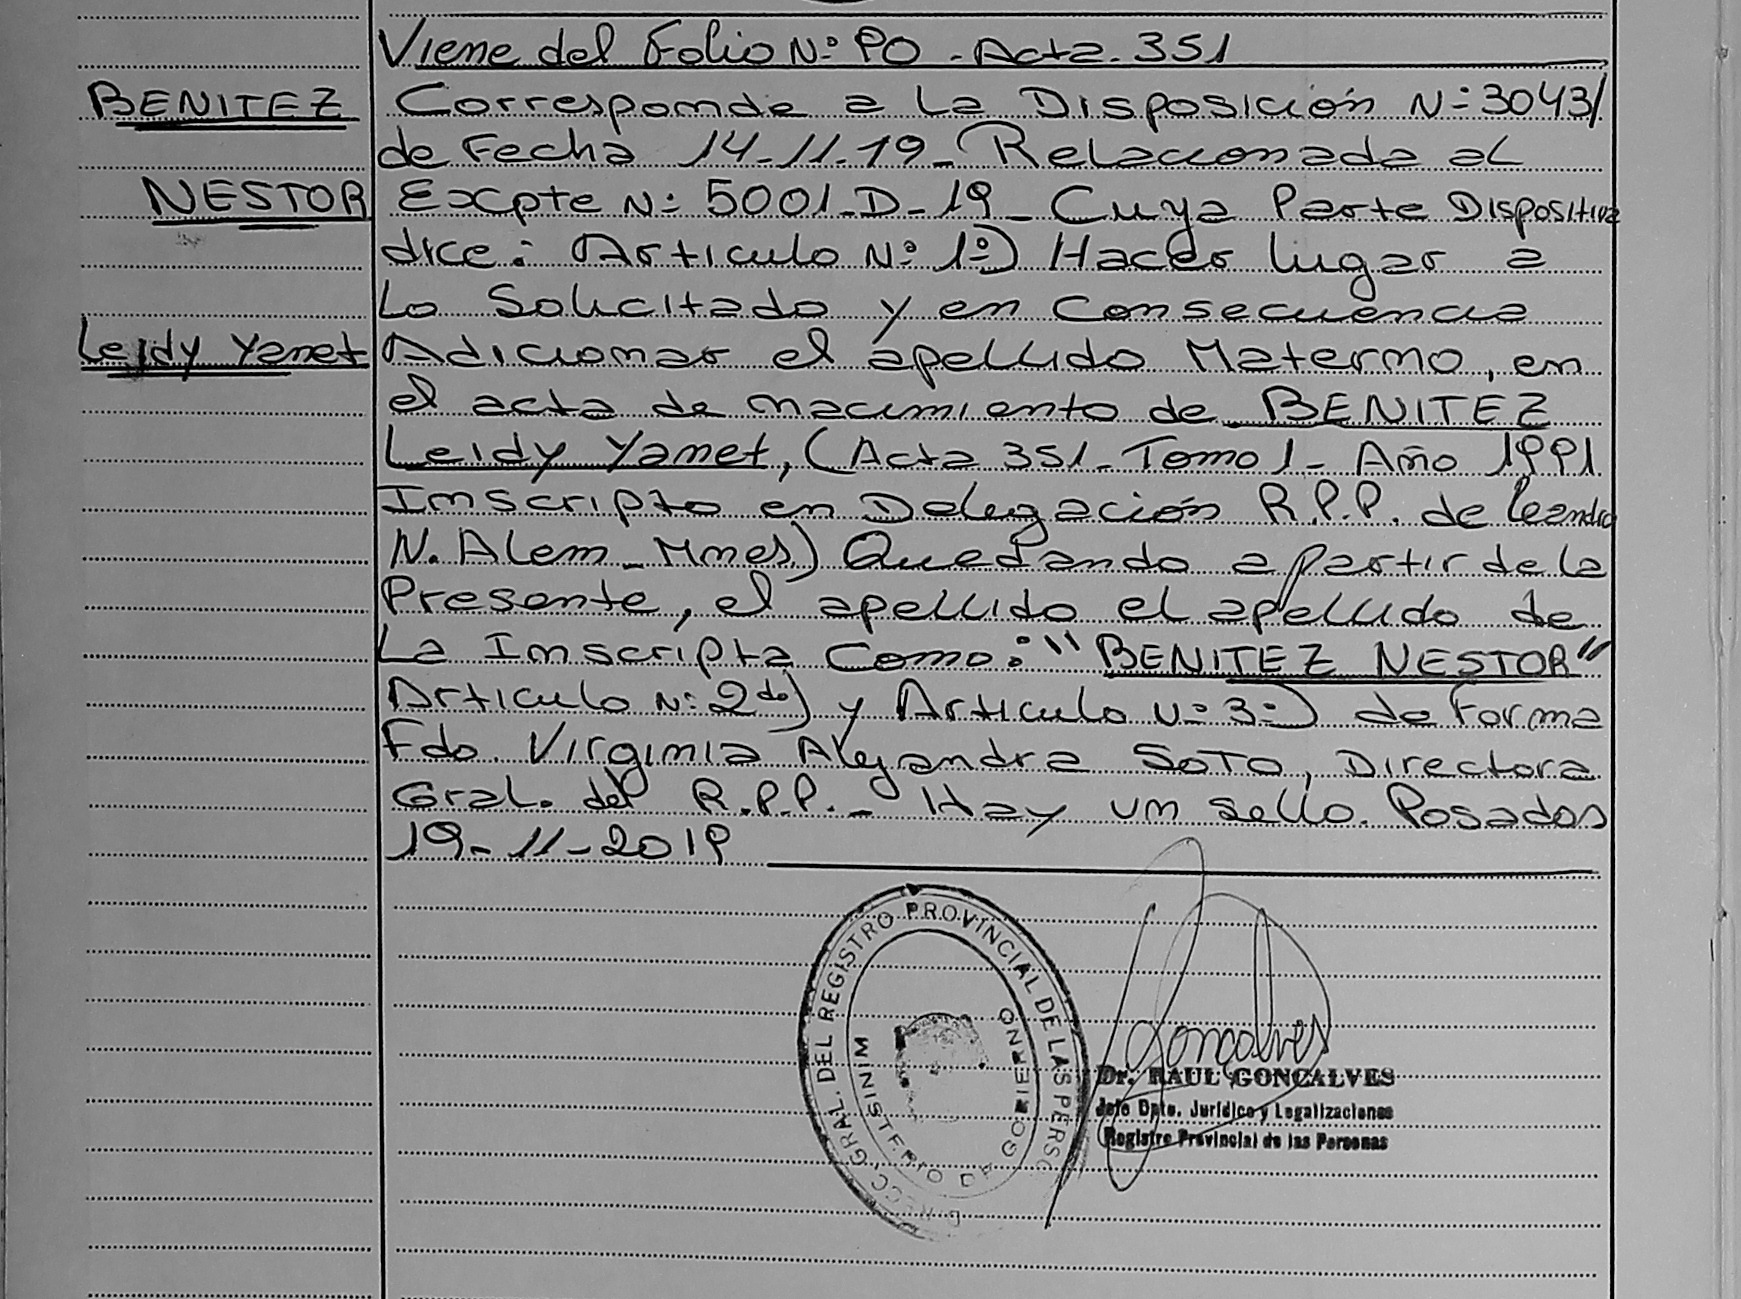 Viene del Folio Nº 90 - Acta. 351
BENITEZ
NESTOR
Leidy Yanet
Corresponde a la Disposición Nº 3043/
de Fecha 14-11-19- Relacionada al
Excpte Nº 5001-D-19- Cuya Parte Dispositiva
dice: Articulo Nº 1º) Hacer lugar a
Lo Solicitado y en Consecuencia
Adicionar el apellido Materno, en
el acta de nacimiento de BENITEZ
Leidy Yanet, (Acta 351- Tomo 1- Año 1991
Inscripto en Delegación R.P.P. de Leandro
N. Alem - Mnes) Quedando a partir de la
Presente, el apellido el apellido de
La Inscripta Como: "BENITEZ NESTOR"
Articulo Nº 2do) y Articulo Nº 3º) de Forma
Fdo. Virginia Alejandra SOTO, Directora
Gral. del R.P.P. - Hay un sello. Posadas
19-11-2019
GRAL. DEL REGISTRO PROVINCIAL DE LAS PERSO
MINISTERIO DE GOBIERNO
Gonçalves
Dr. RAUL GONÇALVES
Jefe Dpto. Jurídico y Legalizaciones
Registro Provincial de las Personas